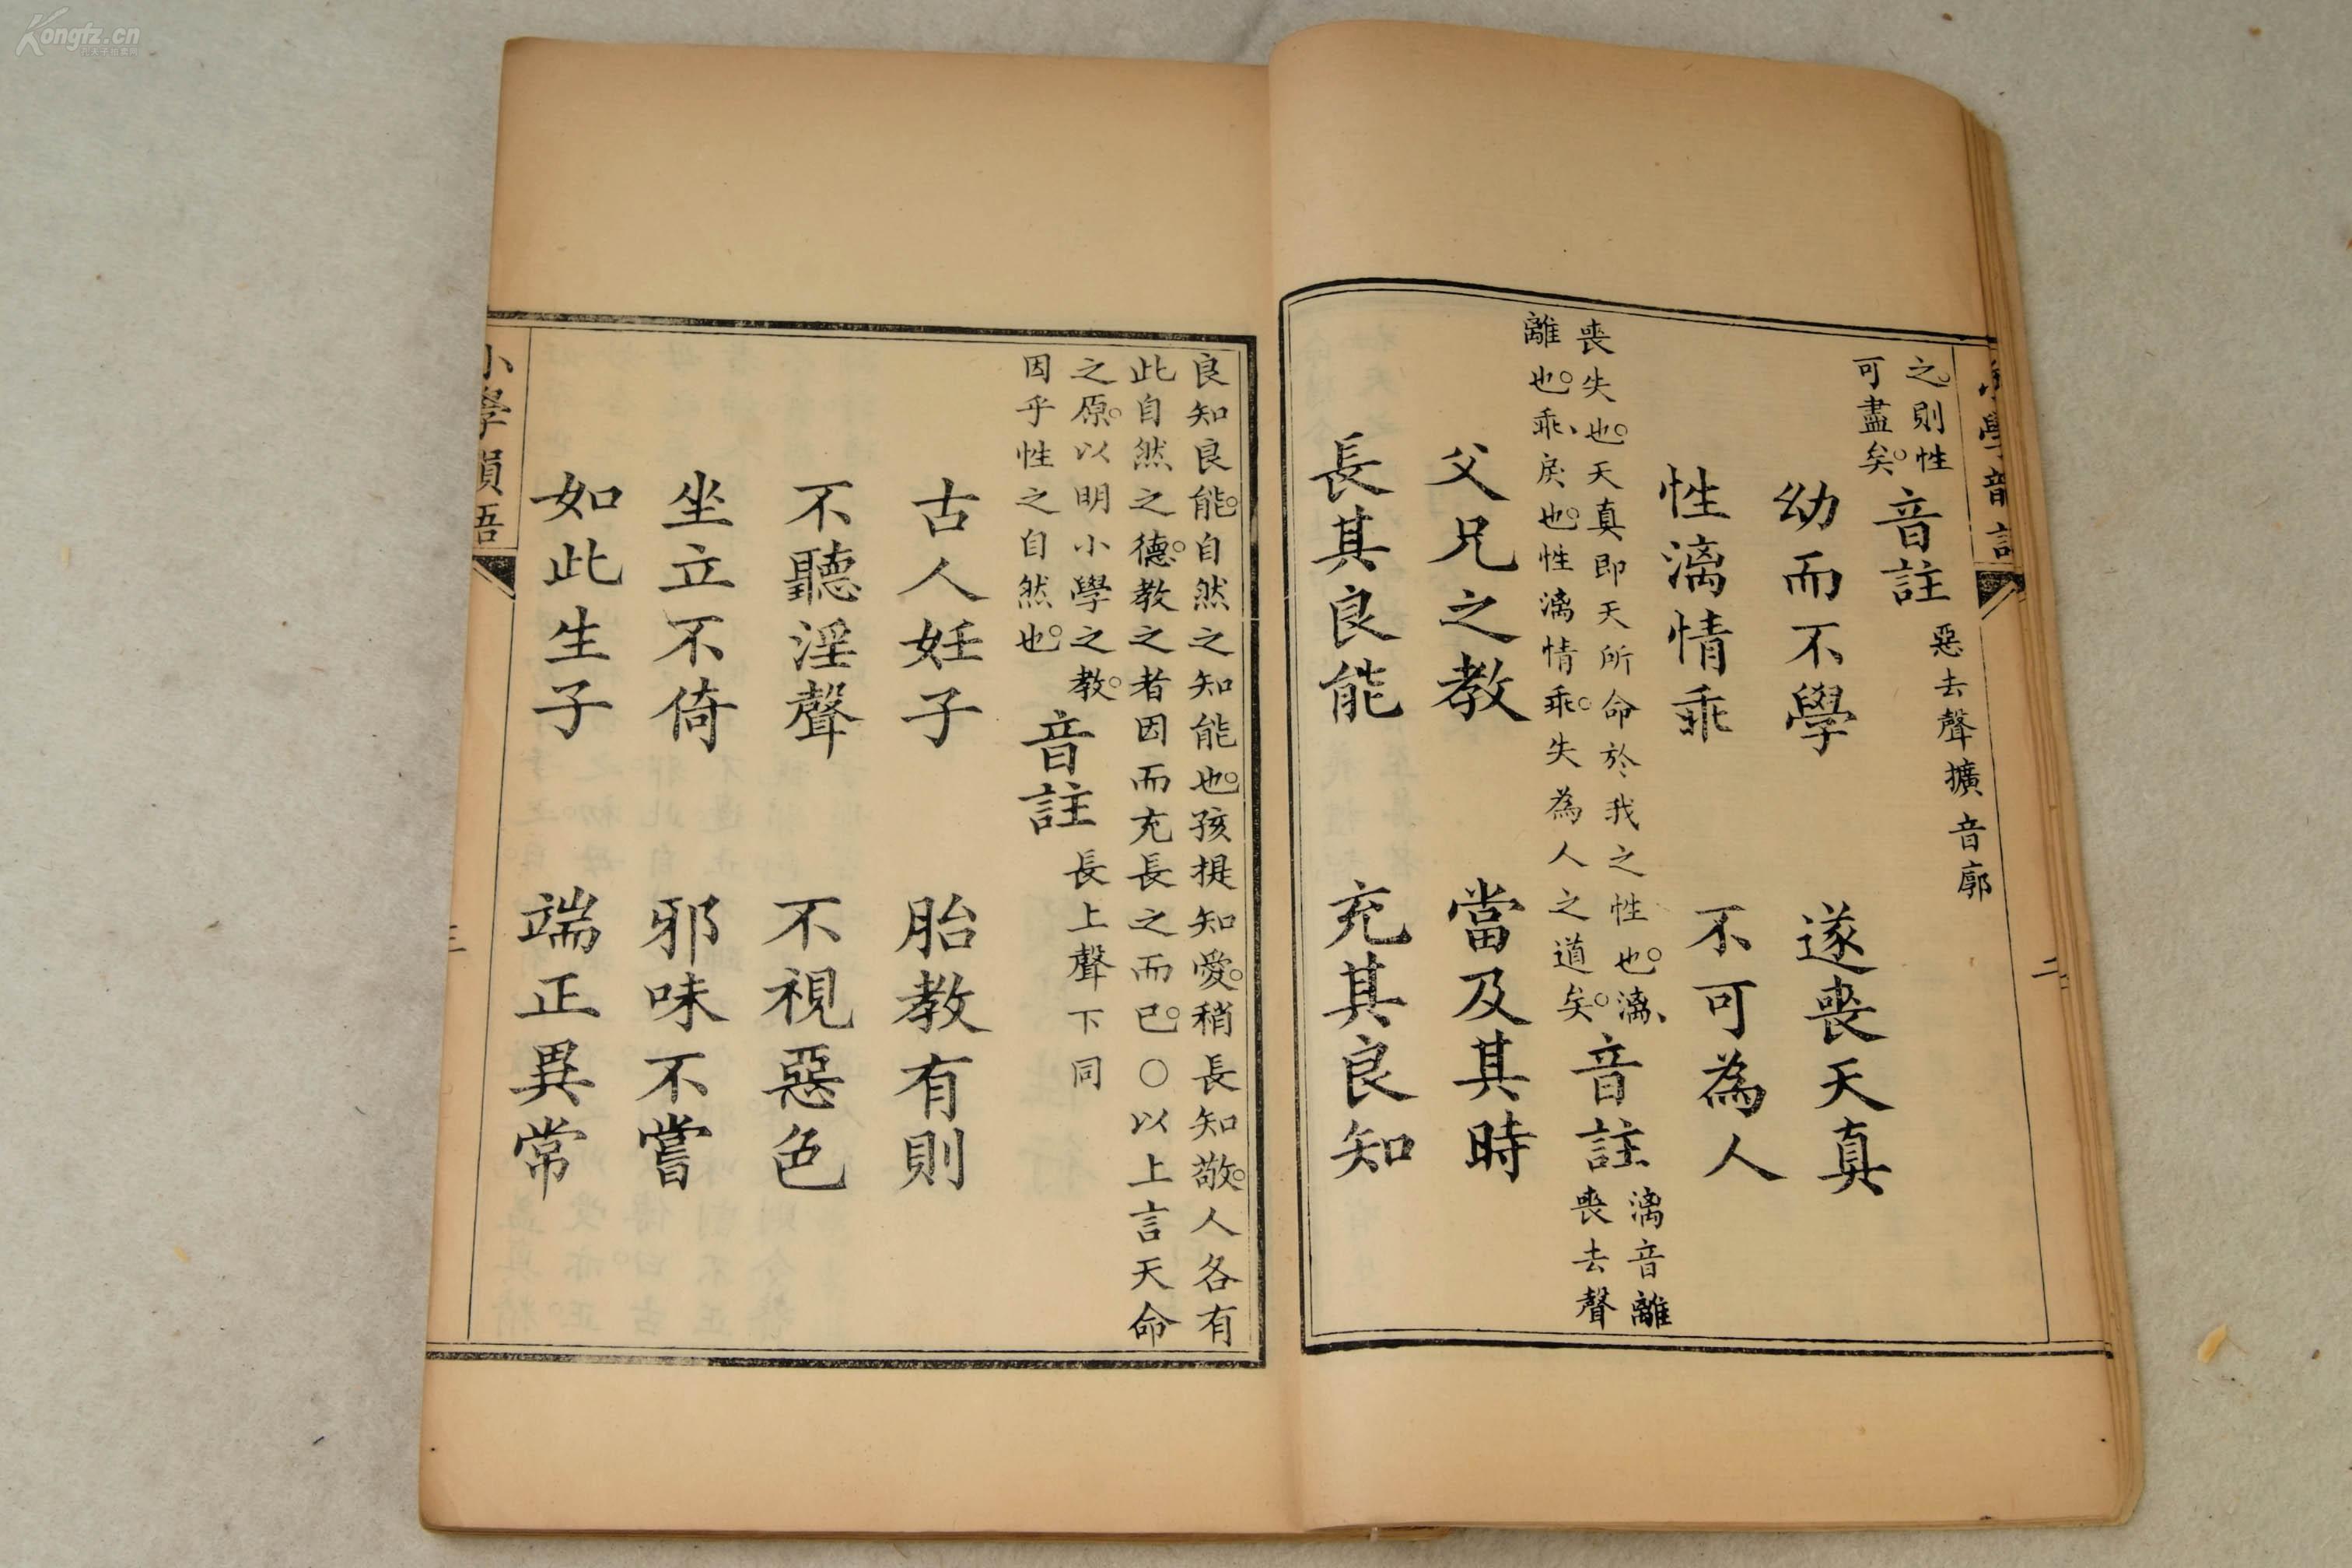 Kongfz.cn
小學韻語
之則性
可盡矣
音註
惡去聲擴音廓
幼而不學
遂喪天真
性漓情乖
不可為人
喪失也天真即天所命於我之性也漓
離也乖戾也性漓情乖失為人之道矣
音註
漓音離
喪去聲
父兄之教
當及其時
長其良能
充其良知
二
良知良能自然之知能也孩提知愛稍長知敬人各有
此自然之德教之者因而充長之而已○以上言天命
之原以明小學之教
因乎性之自然也
音註
長上聲下同
古人妊子
胎教有則
不聽淫聲
不視惡色
坐立不倚
邪味不嘗
如此生子
端正異常
小學韻語
三